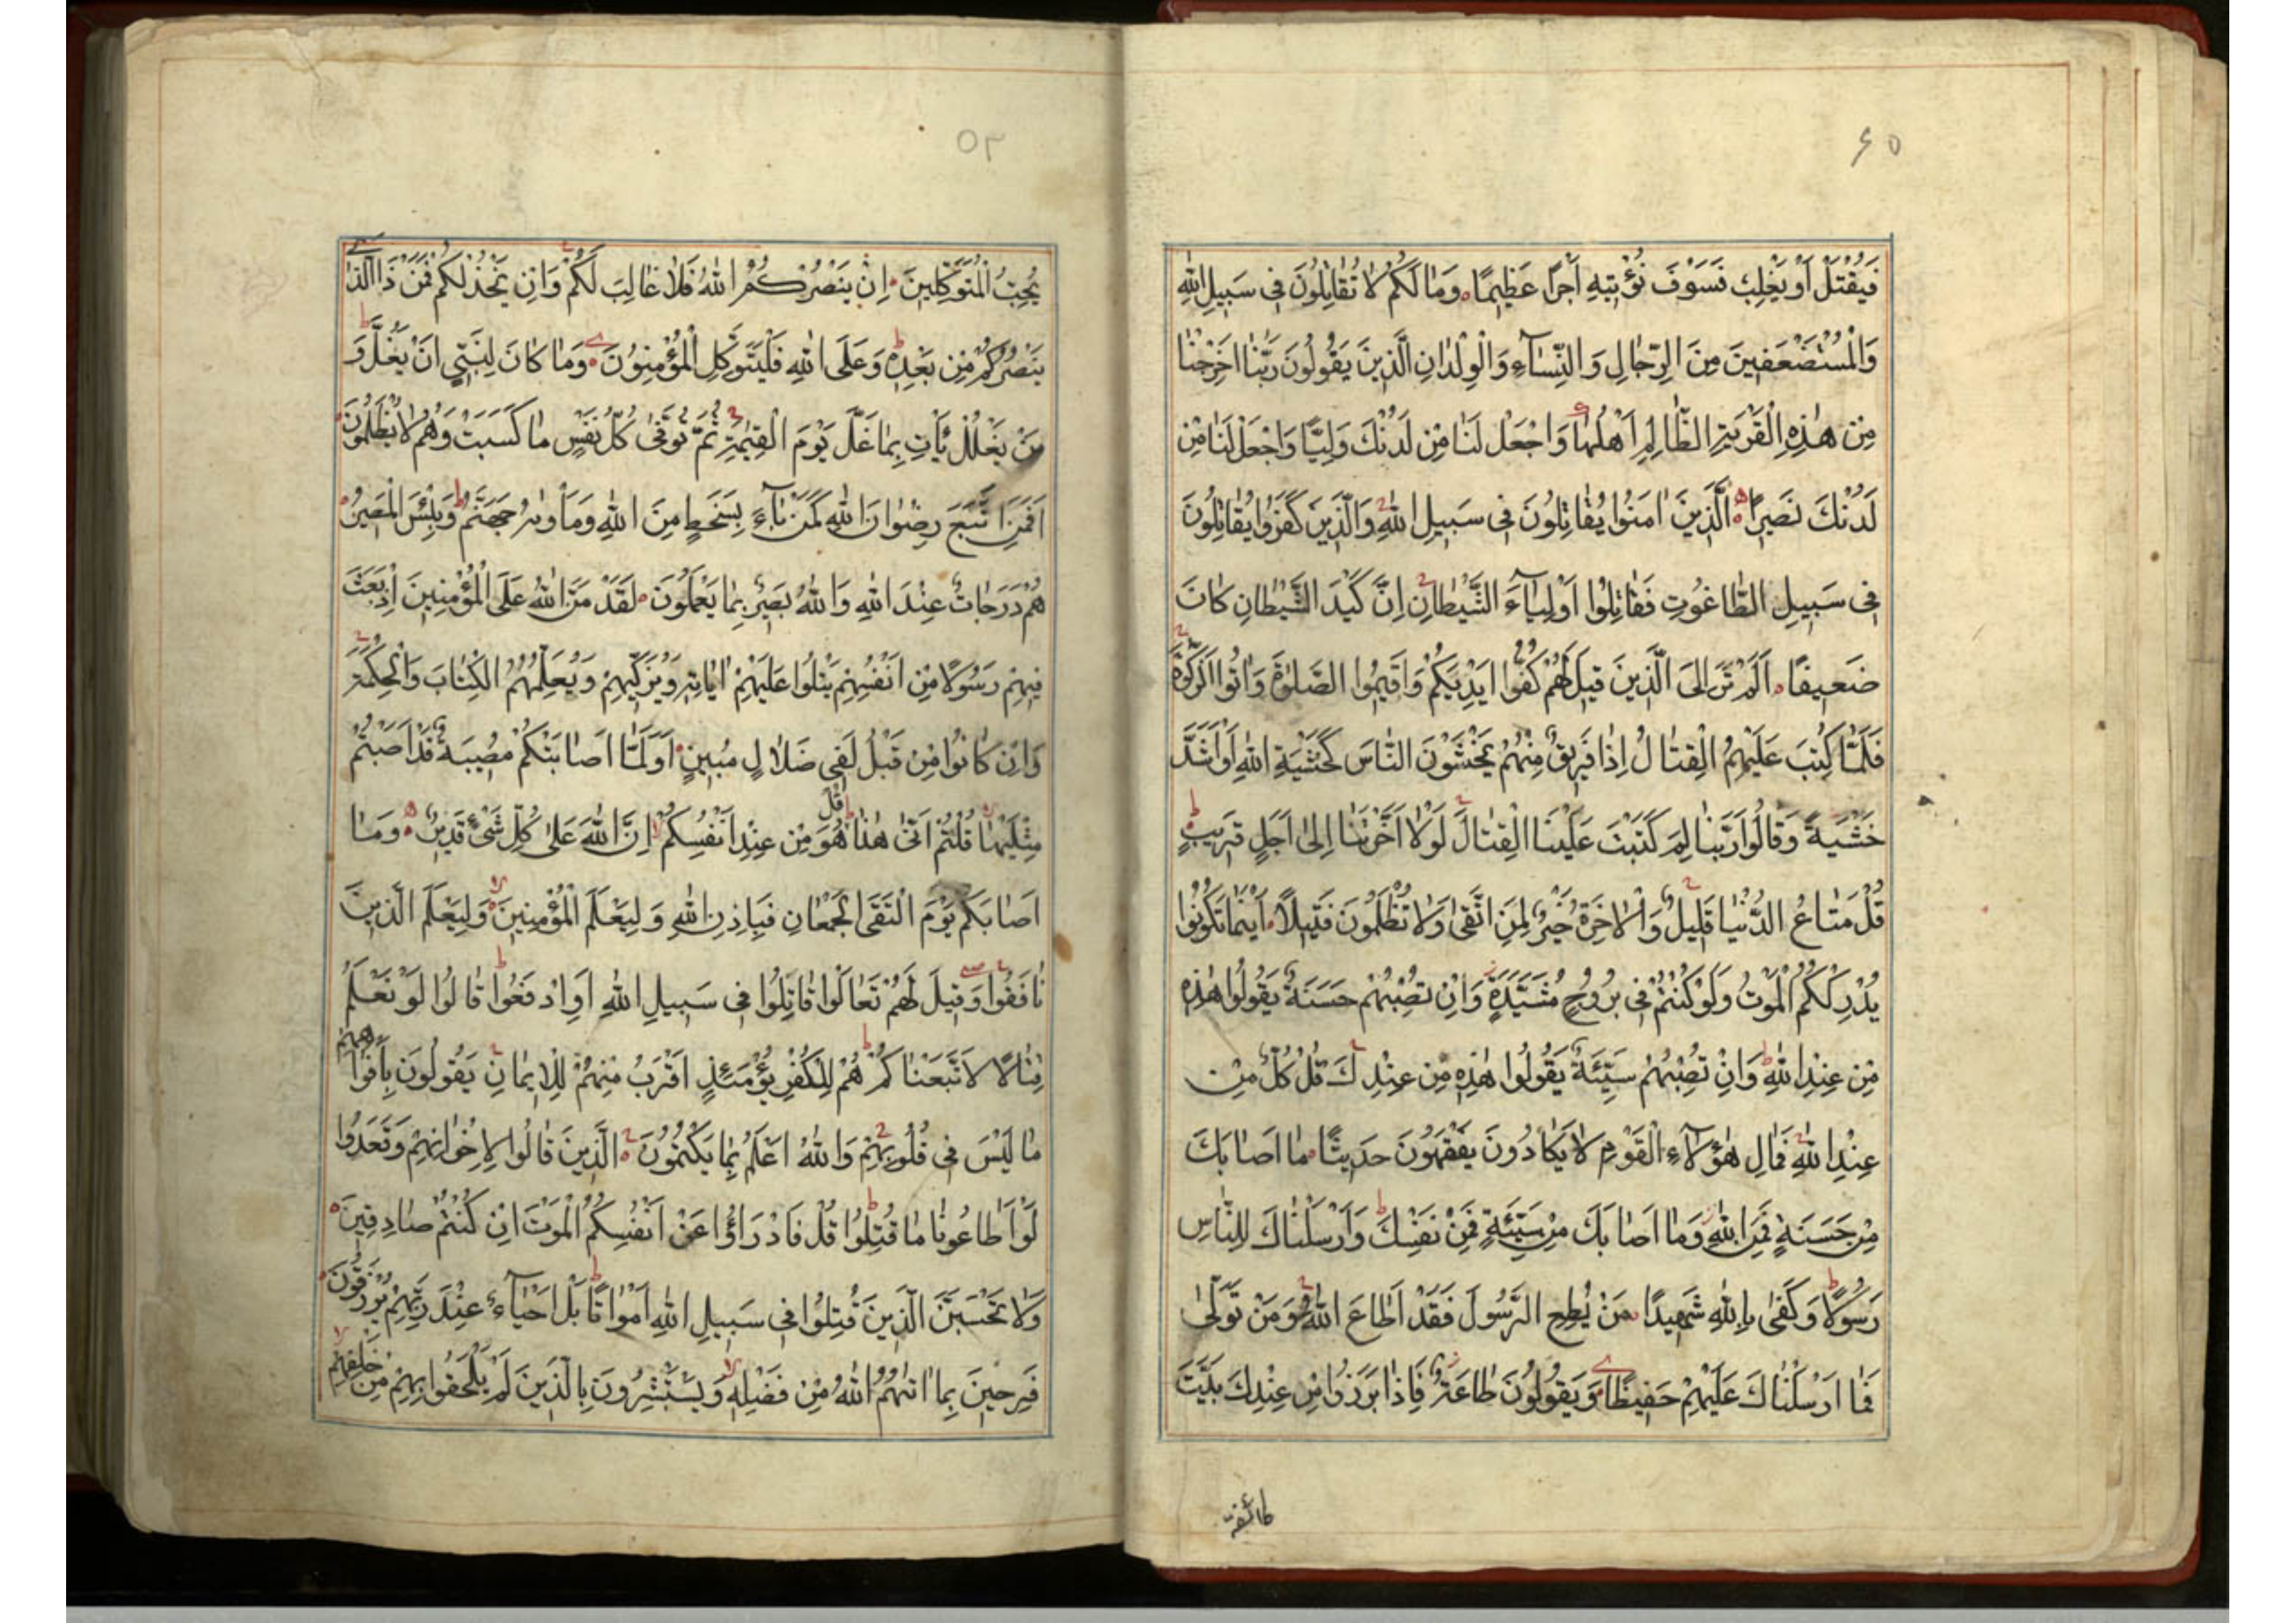 ۶۵
فَيُقْتَلْ أَوْ يَغْلِبْ فَسَوْفَ نُؤْتِيهِ أَجْرًا عَظِيمًا وَمَا لَكُمْ لَا تُقَاتِلُونَ فِي سَبِيلِ اللهِ
وَالْمُسْتَضْعَفِينَ مِنَ الرِّجَالِ وَالنِّسَآءِ وَالْوِلْدَانِ الَّذِينَ يَقُولُونَ رَبَّنَا اَخْرِجْنَا
مِنْ هٰذِهِ الْقَرْيَةِ الظَّالِمِ اَهْلُهَا وَاجْعَلْ لَنَا مِنْ لَدُنْكَ وَلِيًّا وَاجْعَلْ لَنَا مِنْ
لَدُنْكَ نَصِيرًا اَلَّذِينَ اٰمَنُوا يُقَاتِلُونَ فِي سَبِيلِ اللهِ وَالَّذِينَ كَفَرُوا يُقَاتِلُونَ
فِي سَبِيلِ الطَّاغُوتِ فَقَاتِلُوا اَوْلِيَآءَ الشَّيْطَانِ اِنَّ كَيْدَ الشَّيْطَانِ كَانَ
ضَعِيفًا اَلَمْ تَرَ اِلَى الَّذِينَ قِيلَ لَهُمْ كُفُّوا اَيْدِيَكُمْ وَاَقِيمُوا الصَّلٰوةَ وَاٰتُوا الزَّكٰوةَ
فَلَمَّا كُتِبَ عَلَيْهِمُ الْقِتَالُ اِذَا فَرِيقٌ مِنْهُمْ يَخْشَوْنَ النَّاسَ كَخَشْيَةِ اللهِ اَوْ اَشَدَّ
خَشْيَةً وَقَالُوا رَبَّنَا لِمَ كَتَبْتَ عَلَيْنَا الْقِتَالَ لَوْلَا اَخَّرْتَنَا اِلٰى اَجَلٍ قَرِيبٍ
قُلْ مَتَاعُ الدُّنْيَا قَلِيلٌ وَالْاٰخِرَةُ خَيْرٌ لِمَنِ اتَّقٰى وَلَا تُظْلَمُونَ فَتِيلًا اَيْنَمَا تَكُونُوا
يُدْرِكْكُمُ الْمَوْتُ وَلَوْ كُنْتُمْ فِي بُرُوجٍ مُشَيَّدَةٍ وَاِنْ تُصِبْهُمْ حَسَنَةٌ يَقُولُوا هٰذِهِ
مِنْ عِنْدِ اللهِ وَاِنْ تُصِبْهُمْ سَيِّئَةٌ يَقُولُوا هٰذِهِ مِنْ عِنْدِكَ قُلْ كُلٌّ مِنْ
عِنْدِ اللهِ فَمَالِ هٰؤُلَآءِ الْقَوْمِ لَا يَكَادُونَ يَفْقَهُونَ حَدِيثًا مَا اَصَابَكَ
مِنْ حَسَنَةٍ فَمِنَ اللهِ وَمَا اَصَابَكَ مِنْ سَيِّئَةٍ فَمِنْ نَفْسِكَ وَاَرْسَلْنَاكَ لِلنَّاسِ
رَسُولًا وَكَفٰى بِاللهِ شَهِيدًا مَنْ يُطِعِ الرَّسُولَ فَقَدْ اَطَاعَ اللهَ وَمَنْ تَوَلّٰى
فَمَا اَرْسَلْنَاكَ عَلَيْهِمْ حَفِيظًا وَيَقُولُونَ طَاعَةٌ فَاِذَا بَرَزُوا مِنْ عِنْدِكَ بَيَّتَ
طائفة
۵۲
يُحِبُّ الْمُتَوَكِّلِينَ اِنْ يَنْصُرْكُمُ اللهُ فَلَا غَالِبَ لَكُمْ وَاِنْ يَخْذُلْكُمْ فَمَنْ ذَا الَّذِي
يَنْصُرُكُمْ مِنْ بَعْدِهِ وَعَلَى اللهِ فَلْيَتَوَكَّلِ الْمُؤْمِنُونَ وَمَا كَانَ لِنَبِيٍّ اَنْ يَغُلَّ وَ
مَنْ يَغْلُلْ يَأْتِ بِمَا غَلَّ يَوْمَ الْقِيٰمَةِ ثُمَّ تُوَفّٰى كُلُّ نَفْسٍ مَا كَسَبَتْ وَهُمْ لَا يُظْلَمُونَ
اَفَمَنِ اتَّبَعَ رِضْوَانَ اللهِ كَمَنْ بَآءَ بِسَخَطٍ مِنَ اللهِ وَمَأْوٰىهُ جَهَنَّمُ وَبِئْسَ الْمَصِيرُ
هُمْ دَرَجَاتٌ عِنْدَ اللهِ وَاللهُ بَصِيرٌ بِمَا يَعْمَلُونَ لَقَدْ مَنَّ اللهُ عَلَى الْمُؤْمِنِينَ اِذْ بَعَثَ
فِيهِمْ رَسُولًا مِنْ اَنْفُسِهِمْ يَتْلُوا عَلَيْهِمْ اٰيَاتِهِ وَيُزَكِّيهِمْ وَيُعَلِّمُهُمُ الْكِتَابَ وَالْحِكْمَةَ
وَاِنْ كَانُوا مِنْ قَبْلُ لَفِي ضَلَالٍ مُبِينٍ اَوَلَمَّا اَصَابَتْكُمْ مُصِيبَةٌ قَدْ اَصَبْتُمْ
مِثْلَيْهَا قُلْتُمْ اَنّٰى هٰذَا قُلْ هُوَ مِنْ عِنْدِ اَنْفُسِكُمْ اِنَّ اللهَ عَلٰى كُلِّ شَيْءٍ قَدِيرٌ وَمَا
اَصَابَكُمْ يَوْمَ الْتَقَى الْجَمْعَانِ فَبِاِذْنِ اللهِ وَلِيَعْلَمَ الْمُؤْمِنِينَ وَلِيَعْلَمَ الَّذِينَ
نَافَقُوا وَقِيلَ لَهُمْ تَعَالَوْا قَاتِلُوا فِي سَبِيلِ اللهِ اَوِ ادْفَعُوا قَالُوا لَوْ نَعْلَمُ
قِتَالًا لَاتَّبَعْنَاكُمْ هُمْ لِلْكُفْرِ يَوْمَئِذٍ اَقْرَبُ مِنْهُمْ لِلْاِيمَانِ يَقُولُونَ بِاَفْوَاهِهِمْ
مَا لَيْسَ فِي قُلُوبِهِمْ وَاللهُ اَعْلَمُ بِمَا يَكْتُمُونَ اَلَّذِينَ قَالُوا لِاِخْوَانِهِمْ وَقَعَدُوا
لَوْ اَطَاعُونَا مَا قُتِلُوا قُلْ فَادْرَاؤُا عَنْ اَنْفُسِكُمُ الْمَوْتَ اِنْ كُنْتُمْ صَادِقِينَ
وَلَا تَحْسَبَنَّ الَّذِينَ قُتِلُوا فِي سَبِيلِ اللهِ اَمْوَاتًا بَلْ اَحْيَآءٌ عِنْدَ رَبِّهِمْ يُرْزَقُونَ
فَرِحِينَ بِمَا اٰتٰيهُمُ اللهُ مِنْ فَضْلِهِ وَيَسْتَبْشِرُونَ بِالَّذِينَ لَمْ يَلْحَقُوا بِهِمْ مِنْ خَلْفِهِمْ